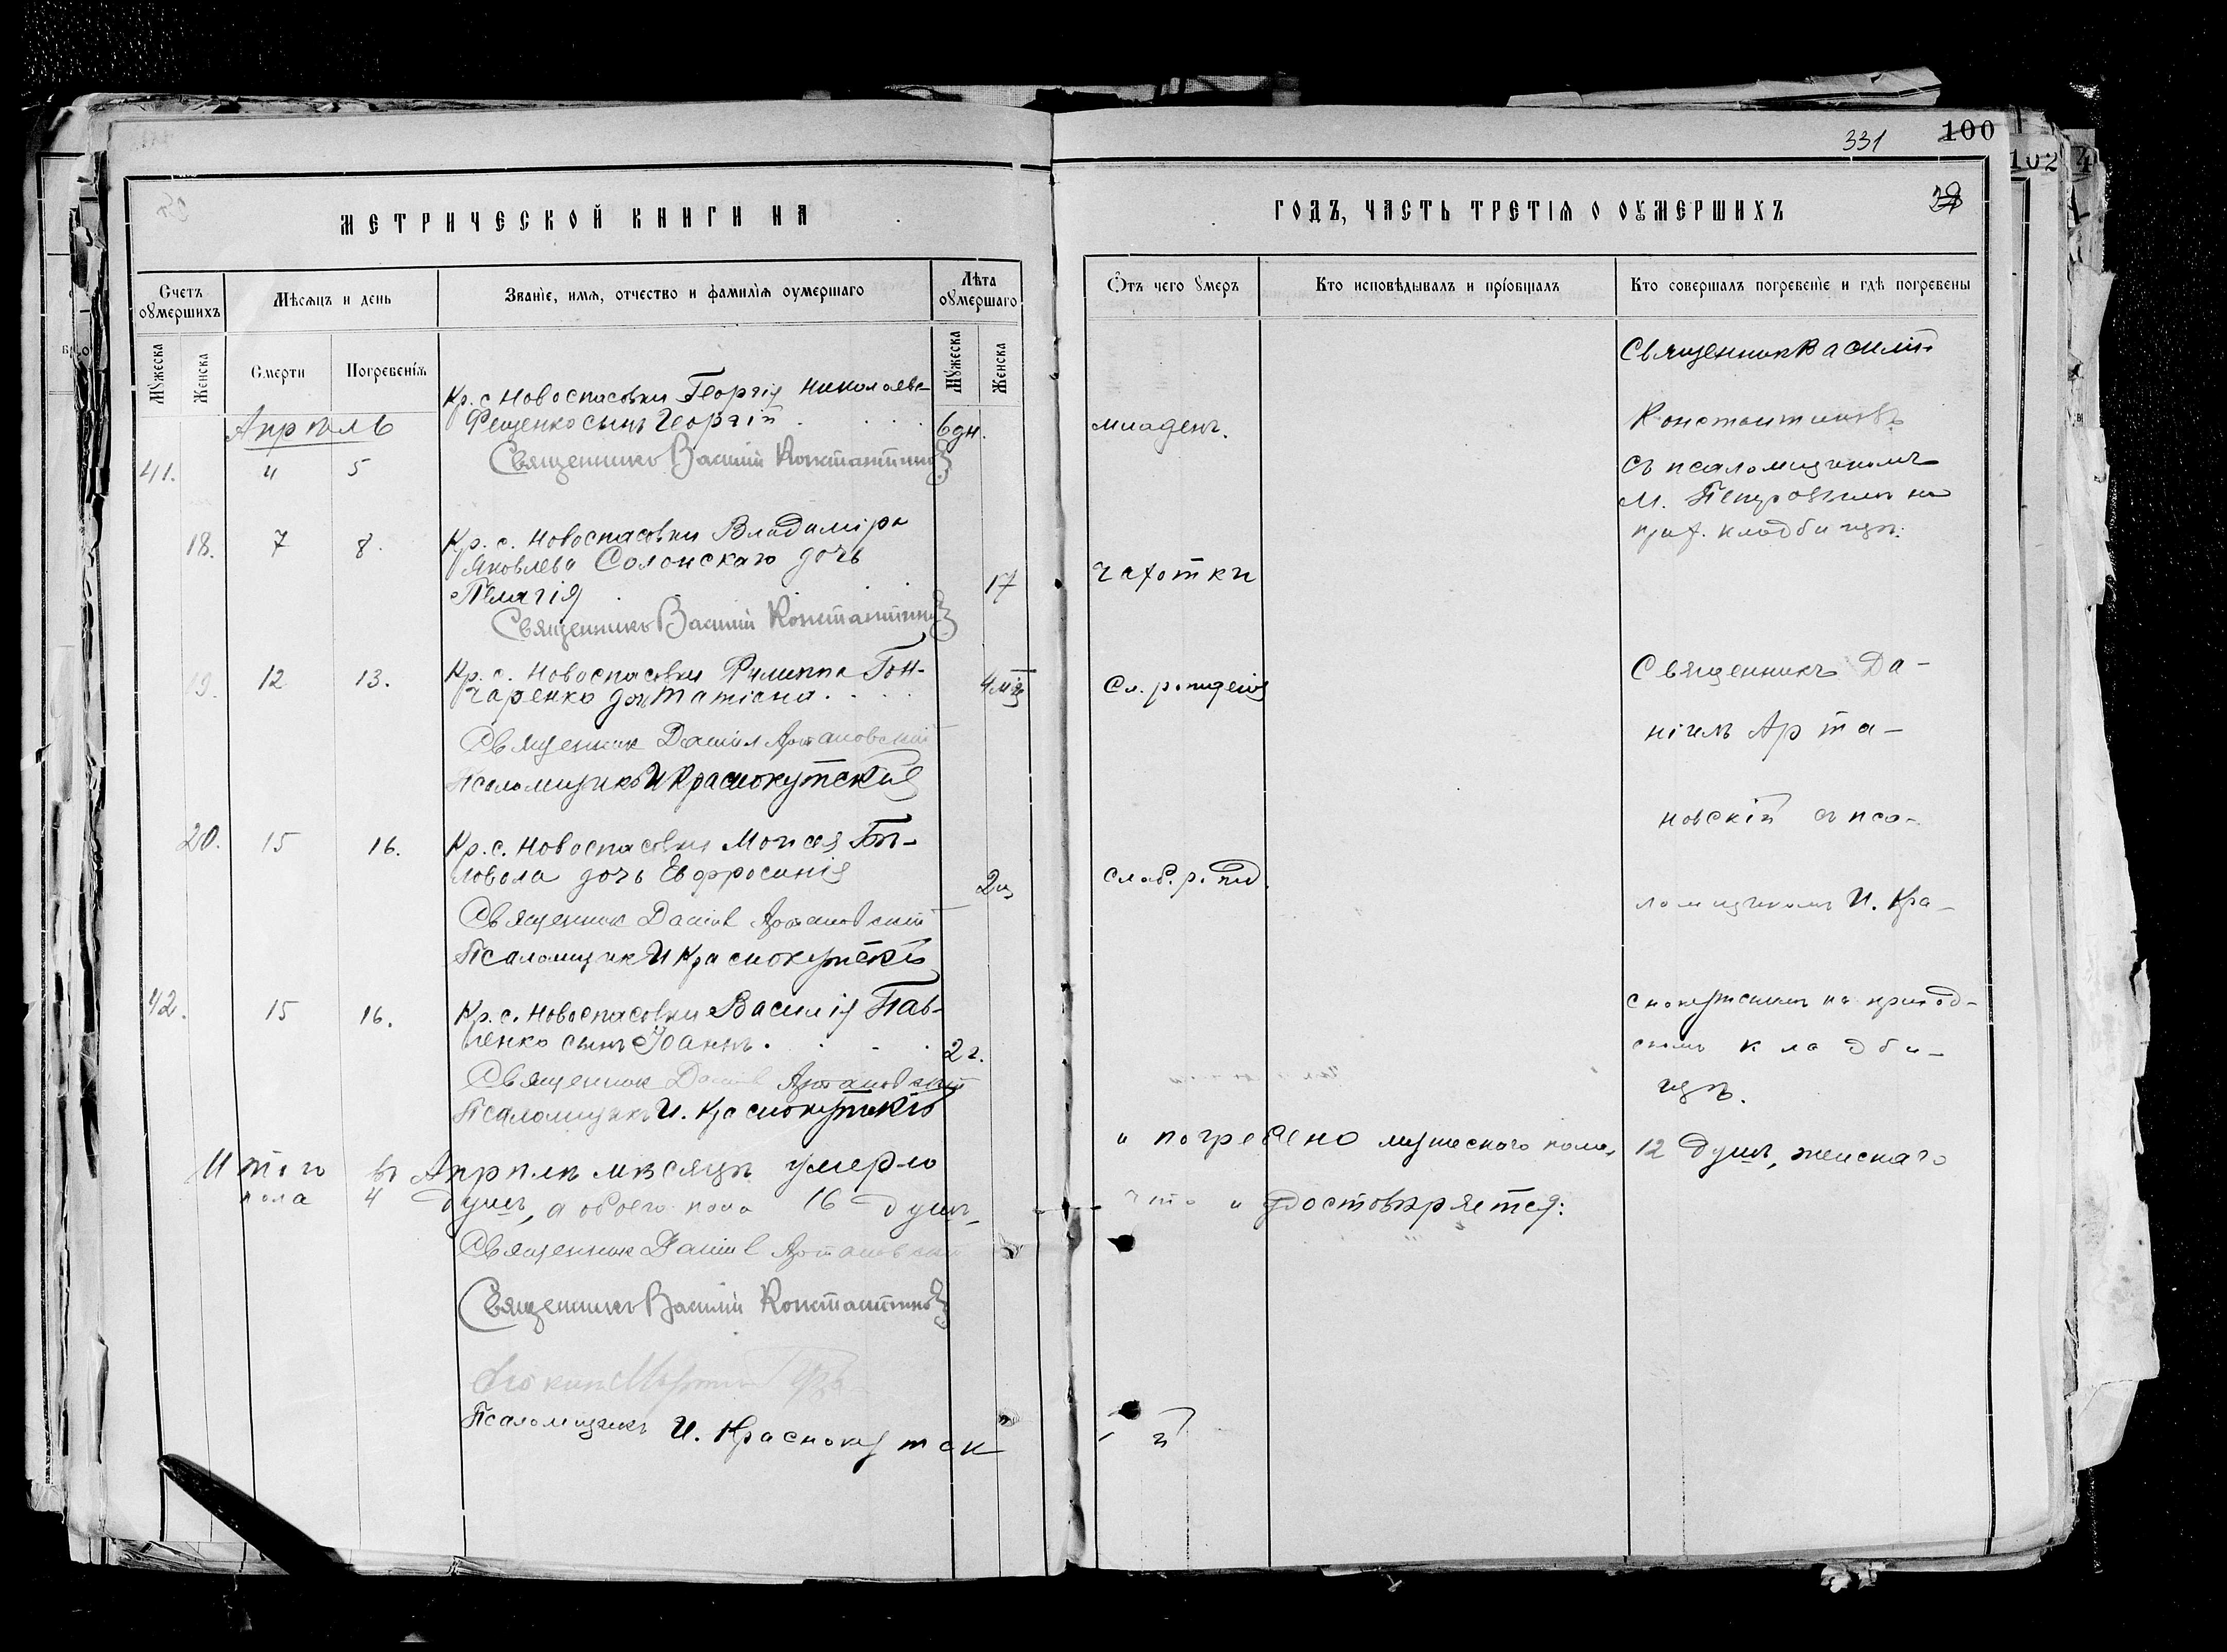 331 100
102
МЕТРИЧЕСКОЙ КНИГИ НА ГОДЪ, ЧАСТЬ ТРЕТІЯ О ОУМЕРШИХЪ
Счетъ оумершихъ
Мѣсяцъ и день
Званіе, имя, отчество и фамилія оумершаго
Лѣта оумершаго
Отъ чего умеръ
Кто исповѣдывалъ и пріобщалъ
Кто совершалъ погребеніе и гдѣ погребены
Мужеска
Женска
Смерти
Погребенія
Мужеска
Женска
Апрѣль
Кр. с. Новоспасовки Георгія Николаева
Фещенко сынъ Георгій . . . . 6 дн. младен.
41. 4 5
Священникъ Василій Константиновъ
Священникъ Василій
Константиновъ
съ псаломщикомъ
М. Петровымъ на
приход. кладбищѣ.
18. 7 8.
Кр. с. Новоспасовки Владиміра
Яковлева Солонскаго дочь
Пелагія . . . 17 Чахотки
Священникъ Василій Константиновъ
19. 12 13.
Кр. с. Новоспасовки Филиппа Гон-
чаренко дочь Татіана . . . 4 мѣс Сл. рожденія
Священник Даніил Артановскій
Псаломщикъ И Краснокутскій
Священникъ Да-
ніилъ Арта-
новскій съ пса-
ломщикомъ И. Кра-
снокутскимъ на приход-
скомъ кладби-
щѣ.
20. 15 16.
Кр. с. Новоспасовки Моисея Бѣ-
ловола дочь Евфросинія 2 Слаб. рожд.
Священник Даніил Артановский
Псаломщик И Краснокутскій
42. 15 16.
Кр. с. Новоспасовки Василія Пав-
ленко сынъ Іоаннъ . . . . 2 г.
Священник Даніил Артановский
Псаломщикъ И. Краснокутскій
Итого въ Апрѣлѣ мѣсяцѣ умерло и погребено мужескаго пола, 12 душъ, женскаго
пола 4 душъ, а обоего пола 16 душъ, что и удостовѣряется:
Священник Даніил Артановский
Священникъ Василій Константиновъ
Псаломщикъ И. Краснокутскій